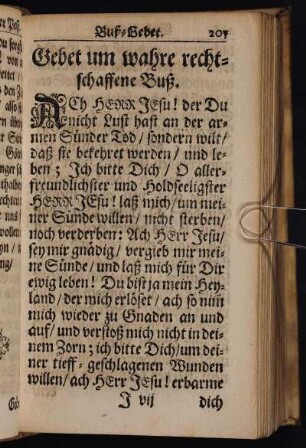 Buß-Gebet. 205
Gebet um wahre recht-
schaffene Buß.
ACh HERR JEsu! der Du
nicht Lust hast an der ar-
men Sünder Tod / sondern wilt /
daß sie bekehret werden / und le-
ben; Jch bitte Dich / O aller-
freundlichster und Holdseeligster
HERR JEsu! laß mich / um mei-
ner Sünde willen / nicht sterben /
noch verderben: Ach HErr Jesu /
sey mir gnädig / vergib mir mei-
ne Sünde / und laß mich für Dir
ewig leben! Du bist ja mein Hey-
land / der mich erlöset / ach so nim̃
mich wieder zu Gnaden an und
auf / und verstoß mich nicht in dei-
nem Zorn; ich bitte Dich / um dei-
ner tieff-geschlagenen Wunden
willen / ach HErr JEsu! erbarme
J vij dich